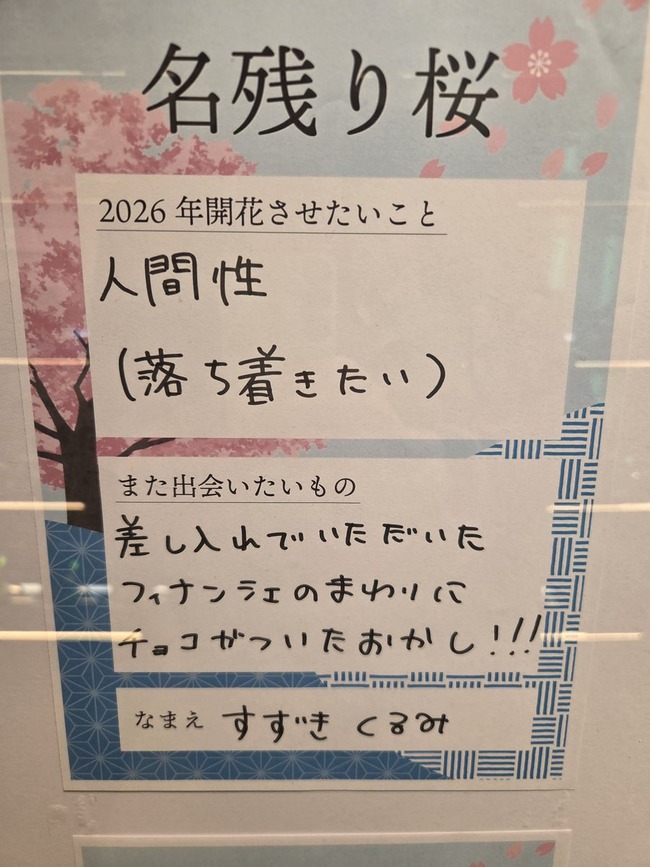 名残り桜
2026 年開花させたいこと
人間性
(落ち着きたい)
また出会いたいもの
差し入れでいただいた
フィナンシェのまわりに
チョコがついたおかし!!!
なまえ すずき くるみ